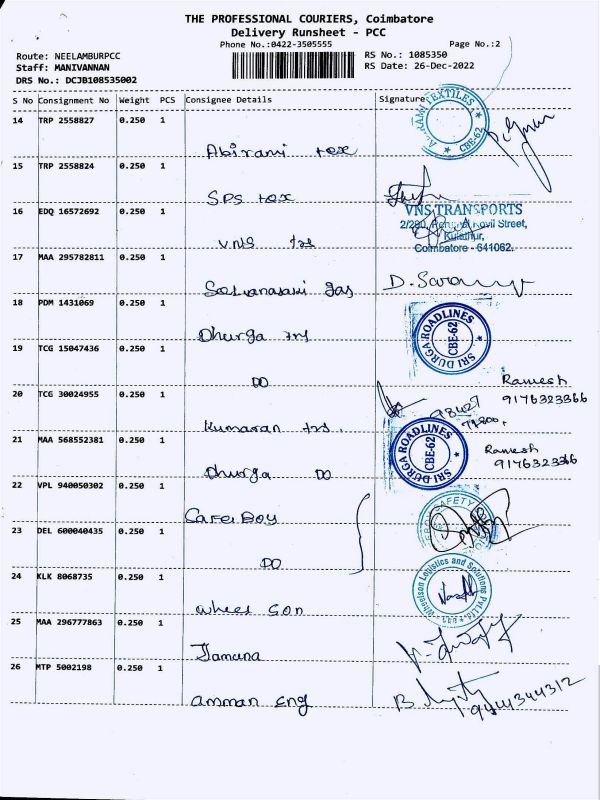 THE PROFESSIONAL COURIERS, Coimbatore
Delivery Runsheet - PCC
Phone No.:0422-3505555 Page No.:2
Route: NEELAMBURPCC RS No.: 1085350
Staff: MANIVANNAN RS Date: 26-Dec-2022
DRS No.: DCJB108535002
S No Consignment No Weight PCS Consignee Details Signature
14 TRP 2558827 0.250 1
Abirami tex
TEXTILES CBE-62
15 TRP 2558824 0.250 1
SPS tex
16 EDQ 16572692 0.250 1
VNS TRANSPORTS
2/280, Kovil Street,
Coimbatore - 641062.
VNS trs
17 MAA 295782811 0.250 1
gas D. Sarom
18 PDM 1431069 0.250 1
Dhurga trs
SRI DURGA ROADLINES CBE-62
19 TCG 15047436 0.250 1
DO
Ramesh
9176323366
20 TCG 30024955 0.250 1
98427
Kumaran trs.
21 MAA 568552381 0.250 1
SRI DURGA ROADLINES CBE-62
Ramesh
9176323366
Dhurga DO
22 VPL 940050302 0.250 1
Safei Boy
SAFETY
23 DEL 600040435 0.250 1
DO
24 KLK 8068735 0.250 1
Wheelson Logistics and Solutions Pvt.Ltd.
wheel son
25 MAA 296777863 0.250 1
Jamuna
26 MTP 5002198 0.250 1
amman eng
9444344312